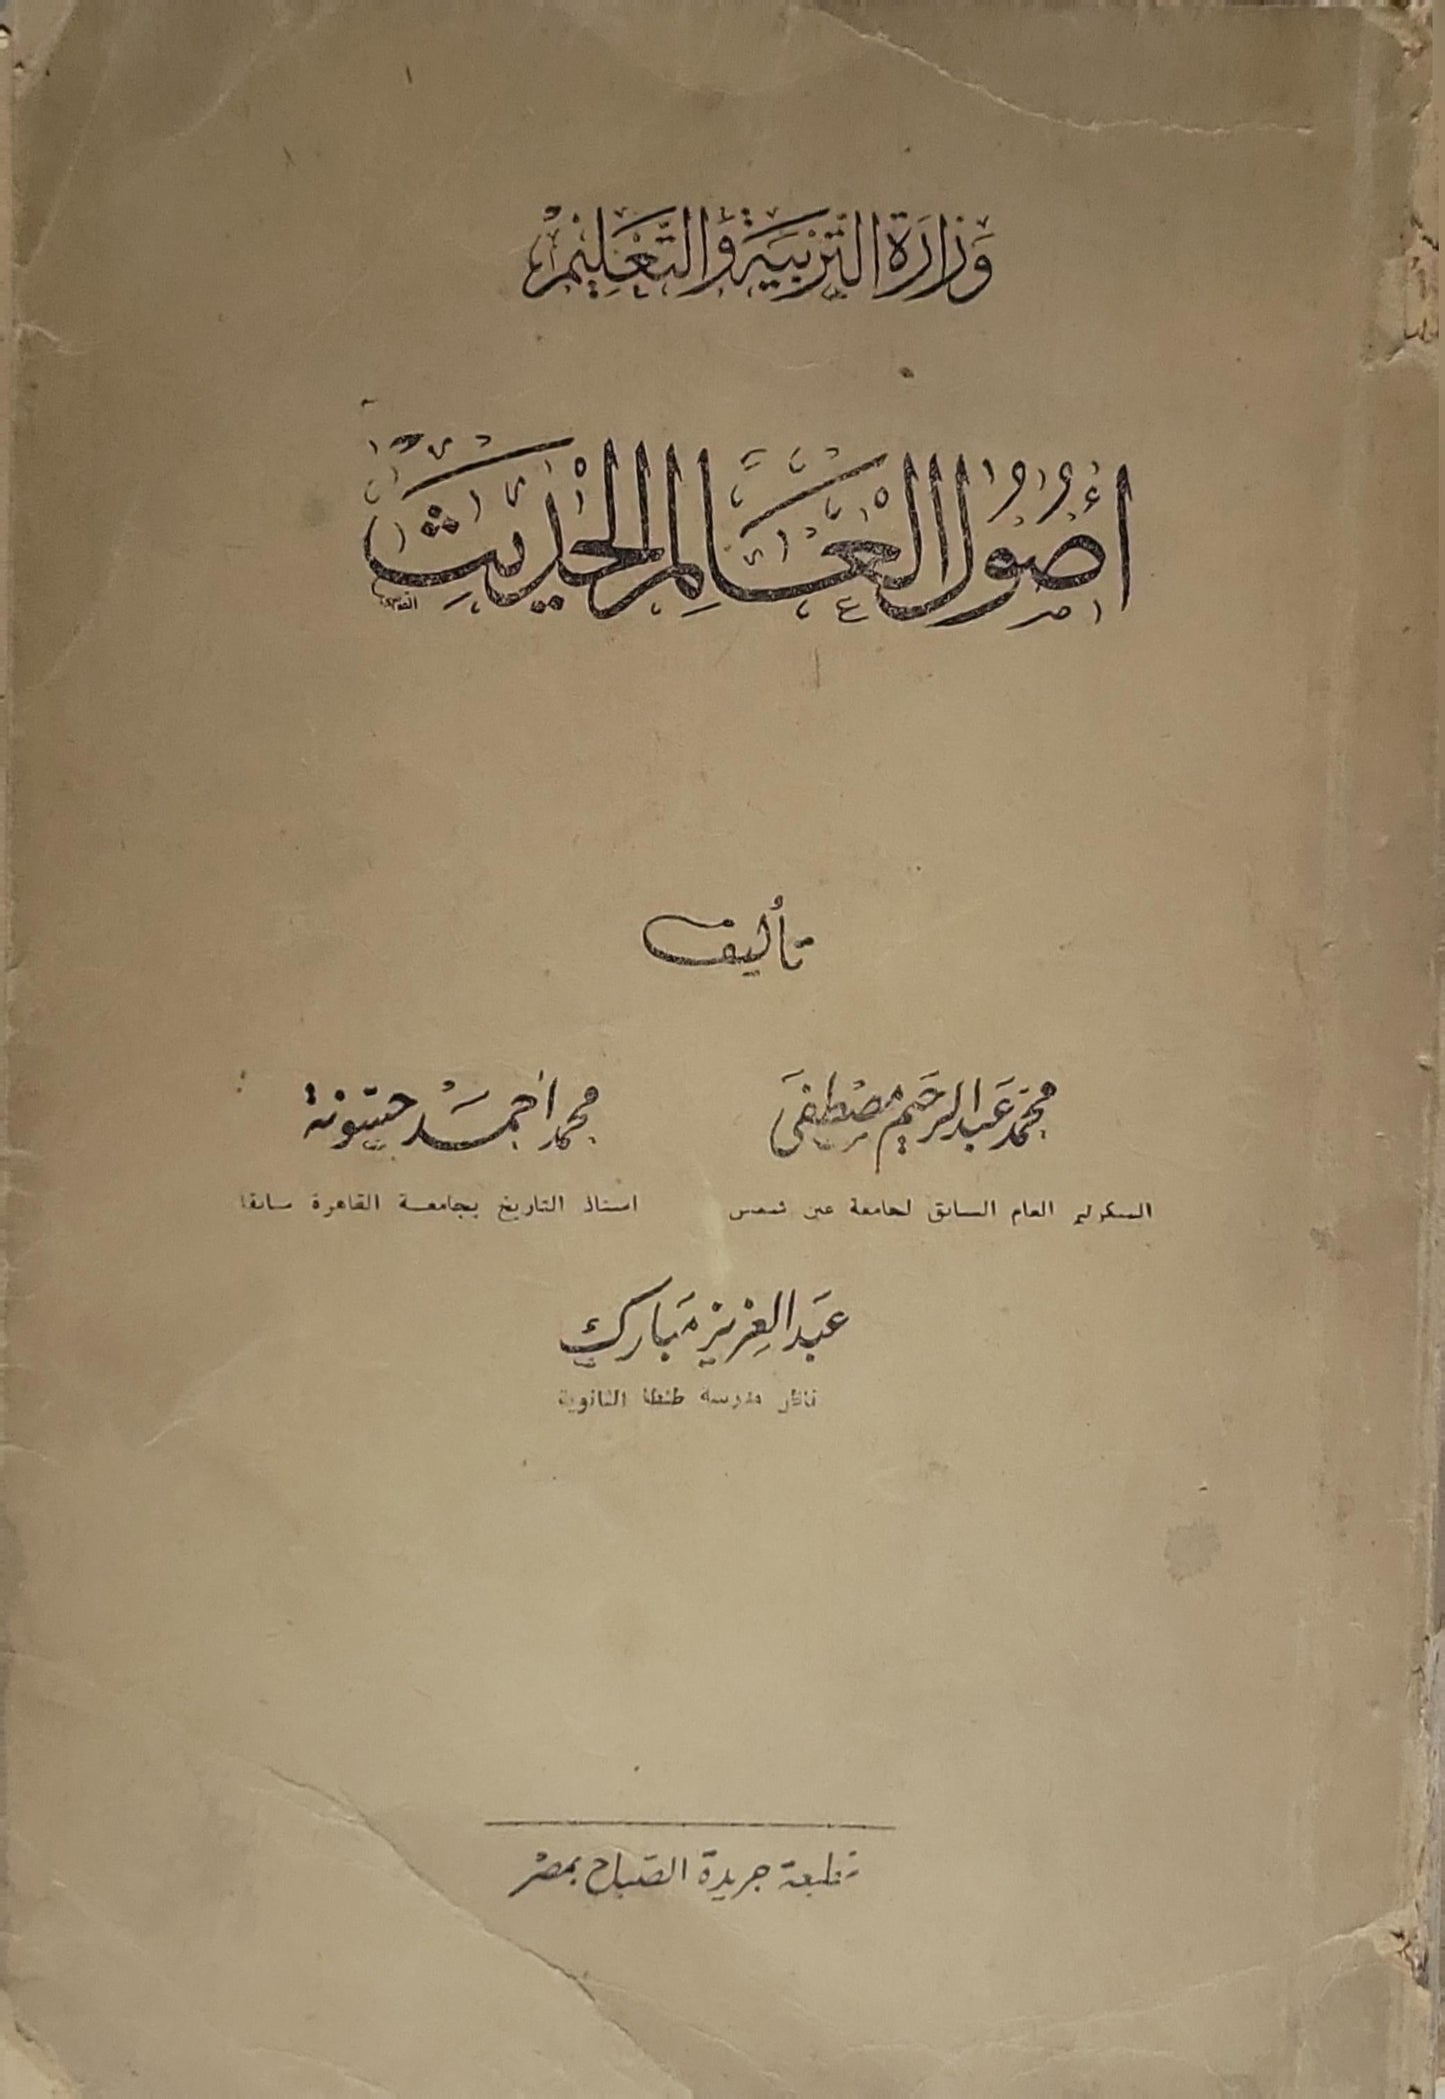 وَزَارَة التَّرْبِيَة وَالتَّعْلِيْمْ
أُصُولُ الْعَالَمِ الْحَدِيْثِ
تأليف
محمد عبد الرحيم مصطفى
محمد احمد حسونة
السكرتير العام السابق لجامعة عين شمس
استاذ التاريخ بجامعة القاهرة سابقا
عبد العزيز مبارك
ناظر مدرسة طنطا الثانوية
مطبعة جريدة الصباح بمصر